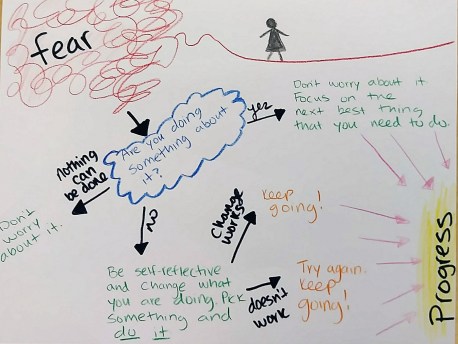 fear
Are you doing
something about
it?
yes
Don't worry about it
Focus on the
next best thing
that you need to do.
nothing
can
be done
Don't
worry
about it.
no
Be self-reflective
and change what
you are doing. Pick
something and
do it
change
works
Keep
going!
doesn't
work
Try again.
Keep
going!
Progress